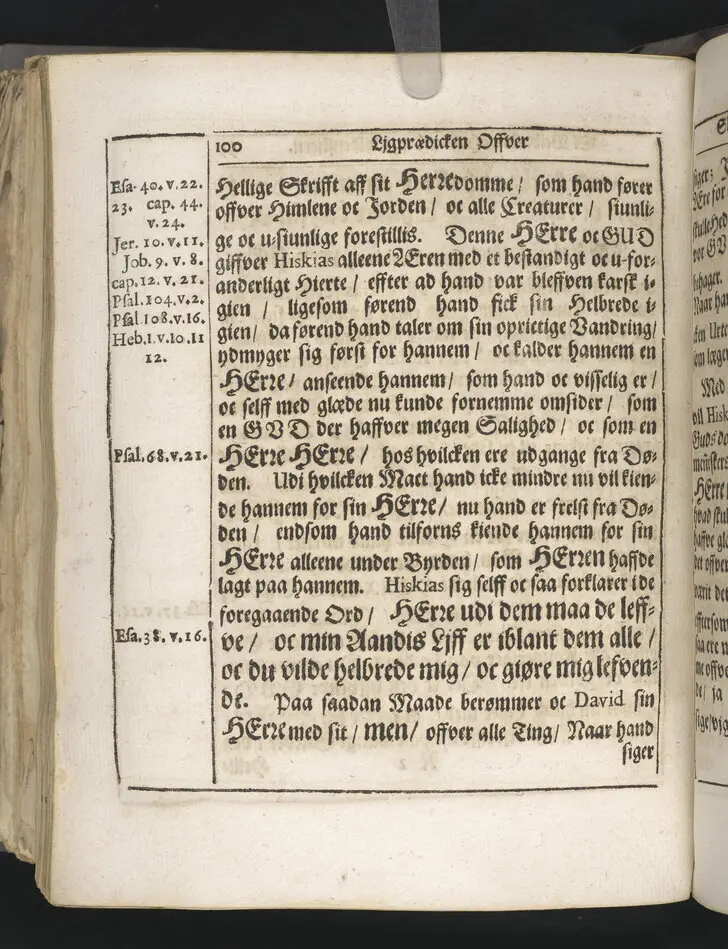 100 Ljgprædicken Offver
Esa. 40. v. 22.
23. cap. 44.
v. 24.
Jer. 10. v. 11.
Job. 9. v. 8.
cap. 12. v. 21.
Psal. 104. v. 2.
Psal 108. v. 16.
Heb. 1. v. 10. 11
12.
Psal. 68. v. 21.
Esa. 38. v. 16.
Hellige Skrifft aff sit Herredomme / som hand fører
offver Himlene oc Jorden / oc alle Creaturer / siunli-
ge oc u-siunlige forestillis. Denne HErre oc GUD
giffver Hiskias alleene Æren med et bestandigt oc u-for-
anderligt Hierte / effter ad hand var bleffven karsk i-
gien / ligesom førend hand fick sin Helbrede i-
gien / da førend hand taler om sin oprictige Vandring /
ydmyger sig først for hannem / oc kalder hannem en
HErre / anseende hannem / som hand oc visselig er /
oc self med glæde nu kunde fornemme omsider / som
en GVD der haffver megen Salighed / oc som en
HErre HErre / hos hvilcken ere udgange fra Dø-
den. Udi hvilcken Maet hand icke mindre nu vil kien-
de hannem for sin HErre / nu hand er frelst fra Dø-
den / endsom hand tilforns kiende hannem for sin
HErre alleene under Byrden / som HErren haffde
lagt paa hannem. Hiskias sig selff oc saa forklarer i de
foregaaende Ord / HErre udi dem maa de leff-
ve / oc min Aandis Ljff er iblant dem alle /
oc du vilde helbrede mig / oc giøre mig lefven-
de. Paa saadan Maade berømmer oc David sin
HErre med sit / men / offver alle Ting / Naar hand
siger